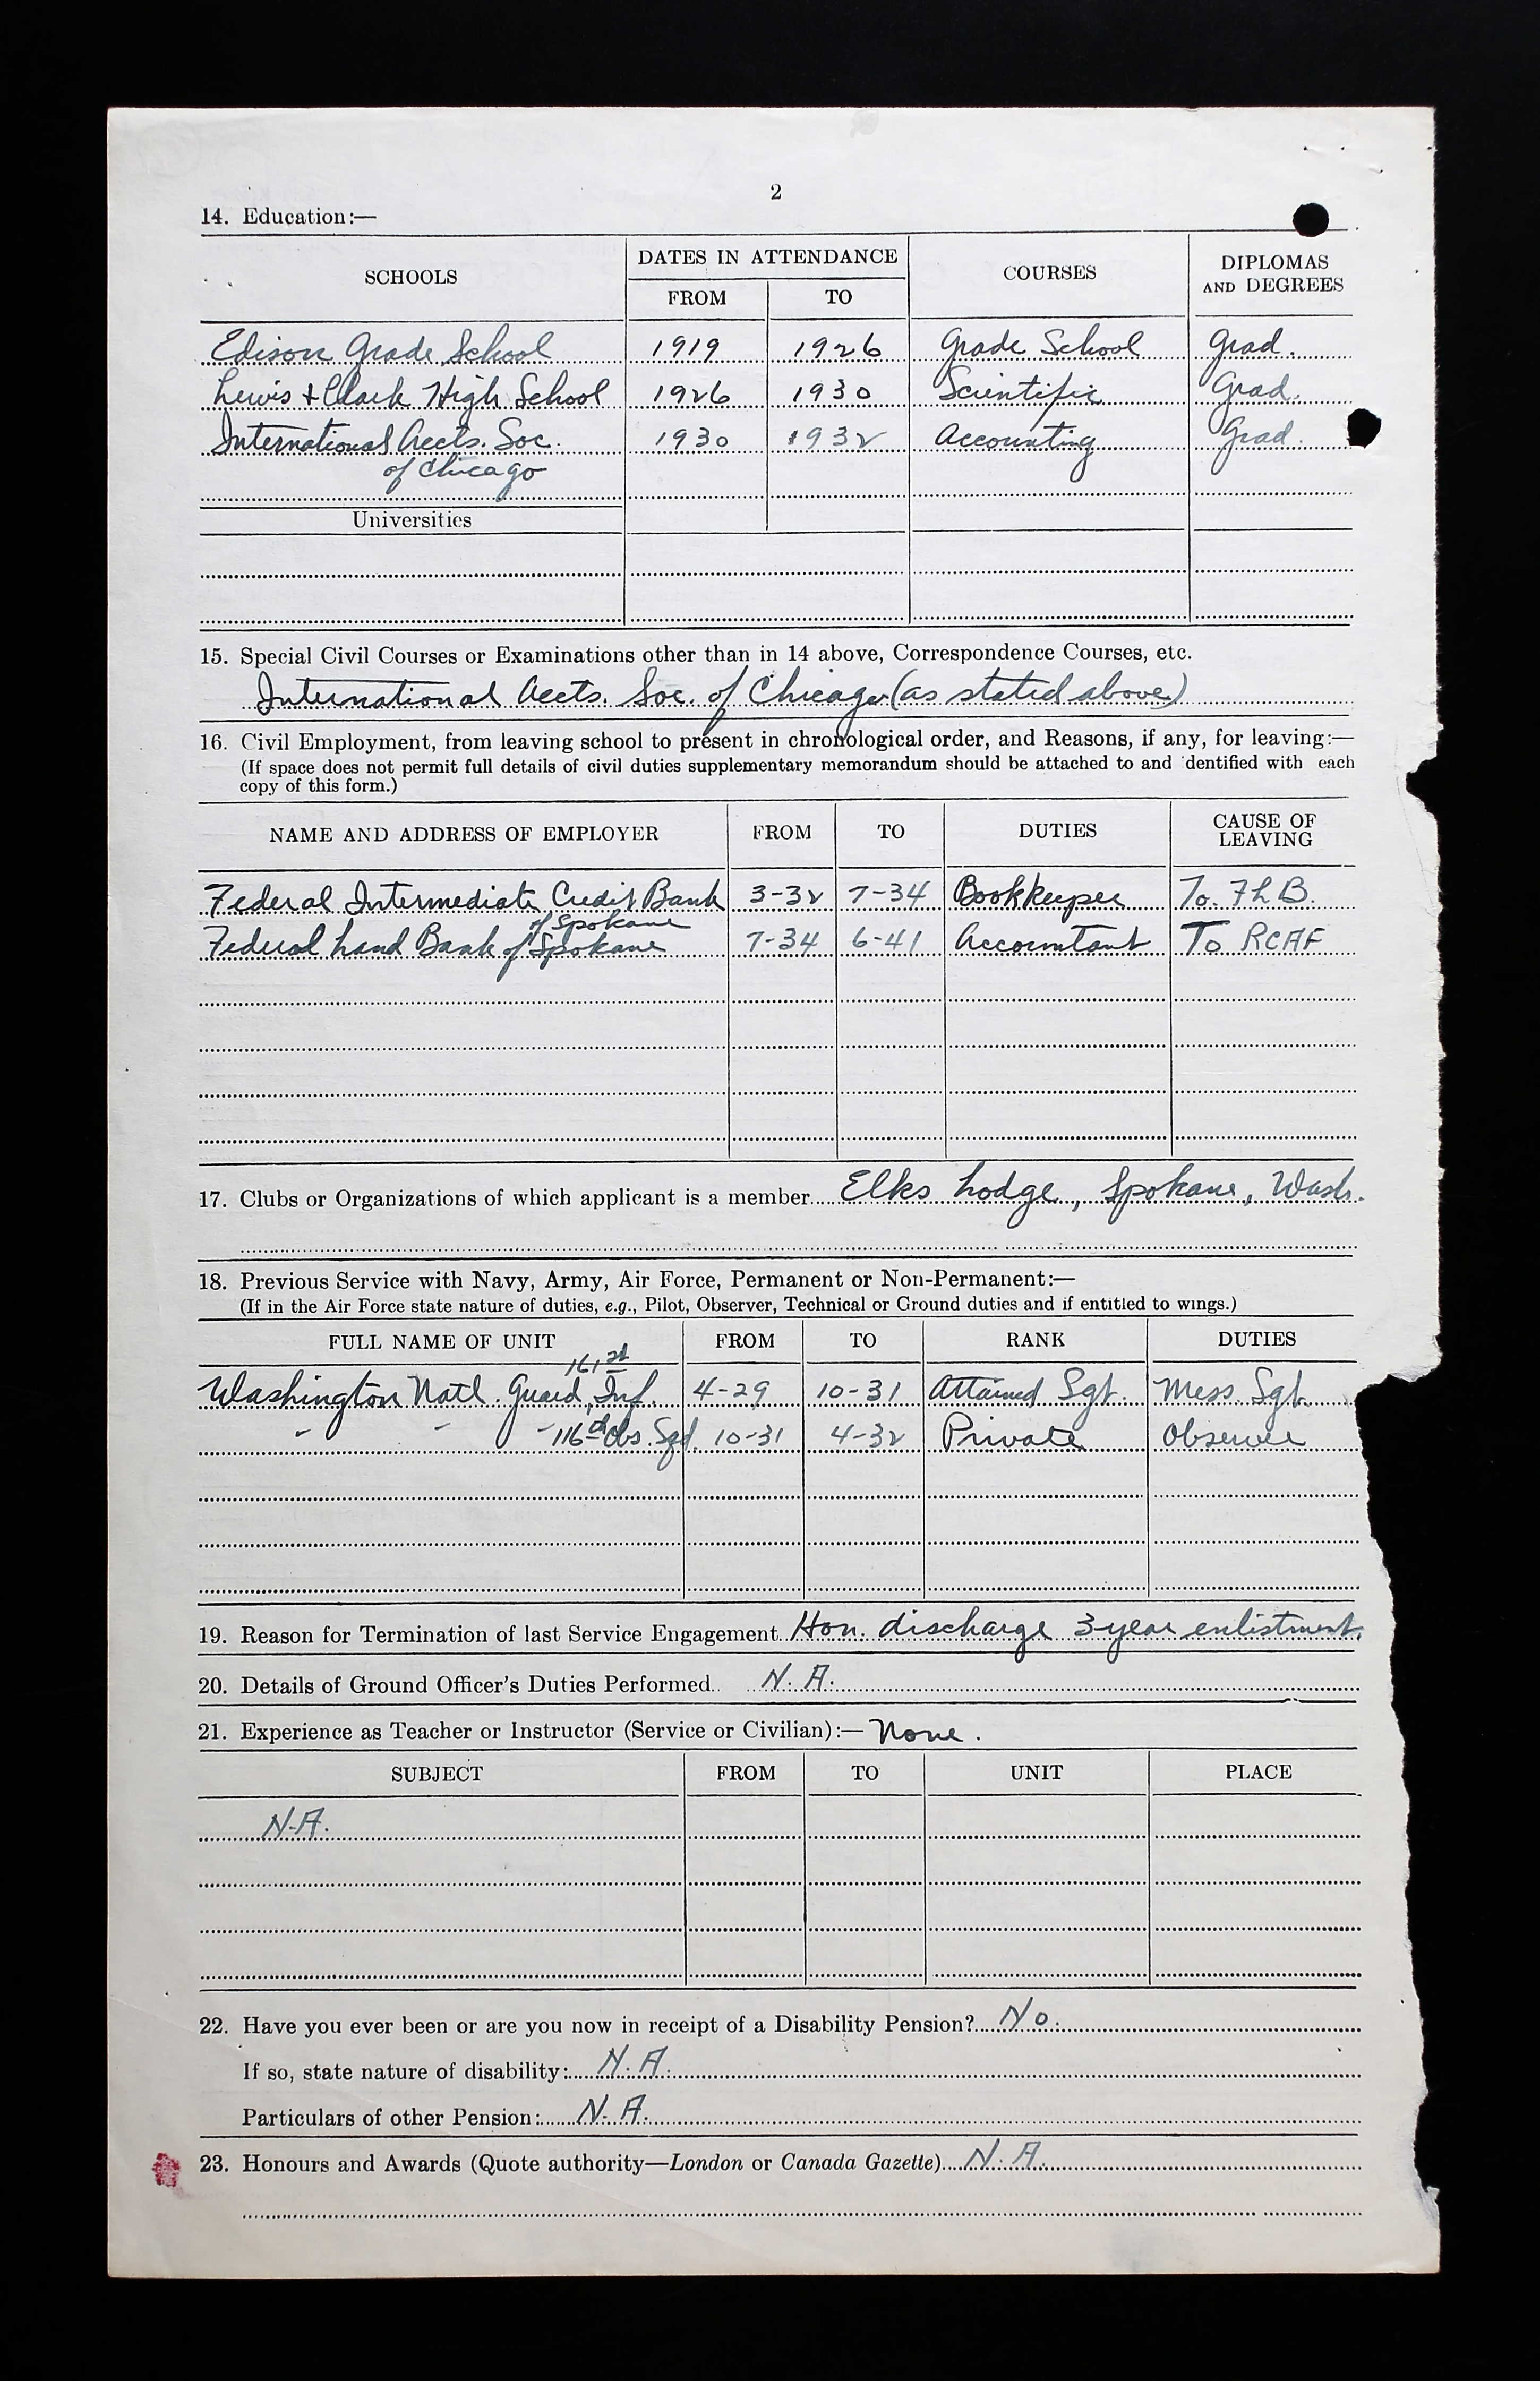 2
14. Education:—
SCHOOLS DATES IN ATTENDANCE COURSES DIPLOMAS AND DEGREES
FROM TO
Edison Grade School 1919 1926 Grade School Grad.
Lewis & Clark High School 1926 1930 Scientific Grad.
International Accts. Soc. 1930 1932 Accounting Grad.
of Chicago
Universities
15. Special Civil Courses or Examinations other than in 14 above, Correspondence Courses, etc.
International Accts. Soc. of Chicago (as stated above)
16. Civil Employment, from leaving school to present in chronological order, and Reasons, if any, for leaving:—
(If space does not permit full details of civil duties supplementary memorandum should be attached to and dentified with each
copy of this form.)
NAME AND ADDRESS OF EMPLOYER FROM TO DUTIES CAUSE OF LEAVING
Federal Intermediate Credit Bank 3-32 7-34 Bookkeeper To FLB.
of Spokane
Federal Land Bank of Spokane 7-34 6-41 Accountant To RCAF
17. Clubs or Organizations of which applicant is a member Elks Lodge, Spokane, Wash.
18. Previous Service with Navy, Army, Air Force, Permanent or Non-Permanent:—
(If in the Air Force state nature of duties, e.g., Pilot, Observer, Technical or Ground duties and if entitled to wings.)
FULL NAME OF UNIT FROM TO RANK DUTIES
161st
Washington Natl. Guard, Inf. 4-29 10-31 Attained Sgt. Mess Sgt.
" " " 116th Obs. Sqd. 10-31 4-32 Private Observer
19. Reason for Termination of last Service Engagement Hon. discharge 3-year enlistment.
20. Details of Ground Officer's Duties Performed N. A.
21. Experience as Teacher or Instructor (Service or Civilian):— None.
SUBJECT FROM TO UNIT PLACE
N.A.
22. Have you ever been or are you now in receipt of a Disability Pension? No.
If so, state nature of disability: N. A.
Particulars of other Pension: N. A.
23. Honours and Awards (Quote authority—London or Canada Gazette) N. A.